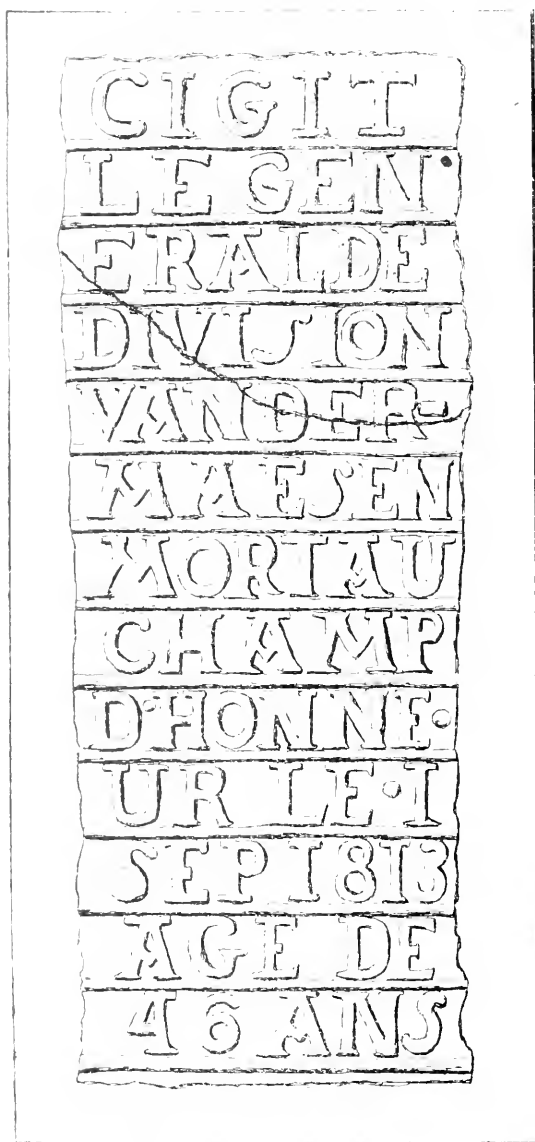 CIGIT
LE GEN·
ERALDE
DIVISION
VANDER-
MAESEN
MORTAU
CHAMP
D'HONNE·
UR LE·I
SEP 1813
AGE DE
46 ANS